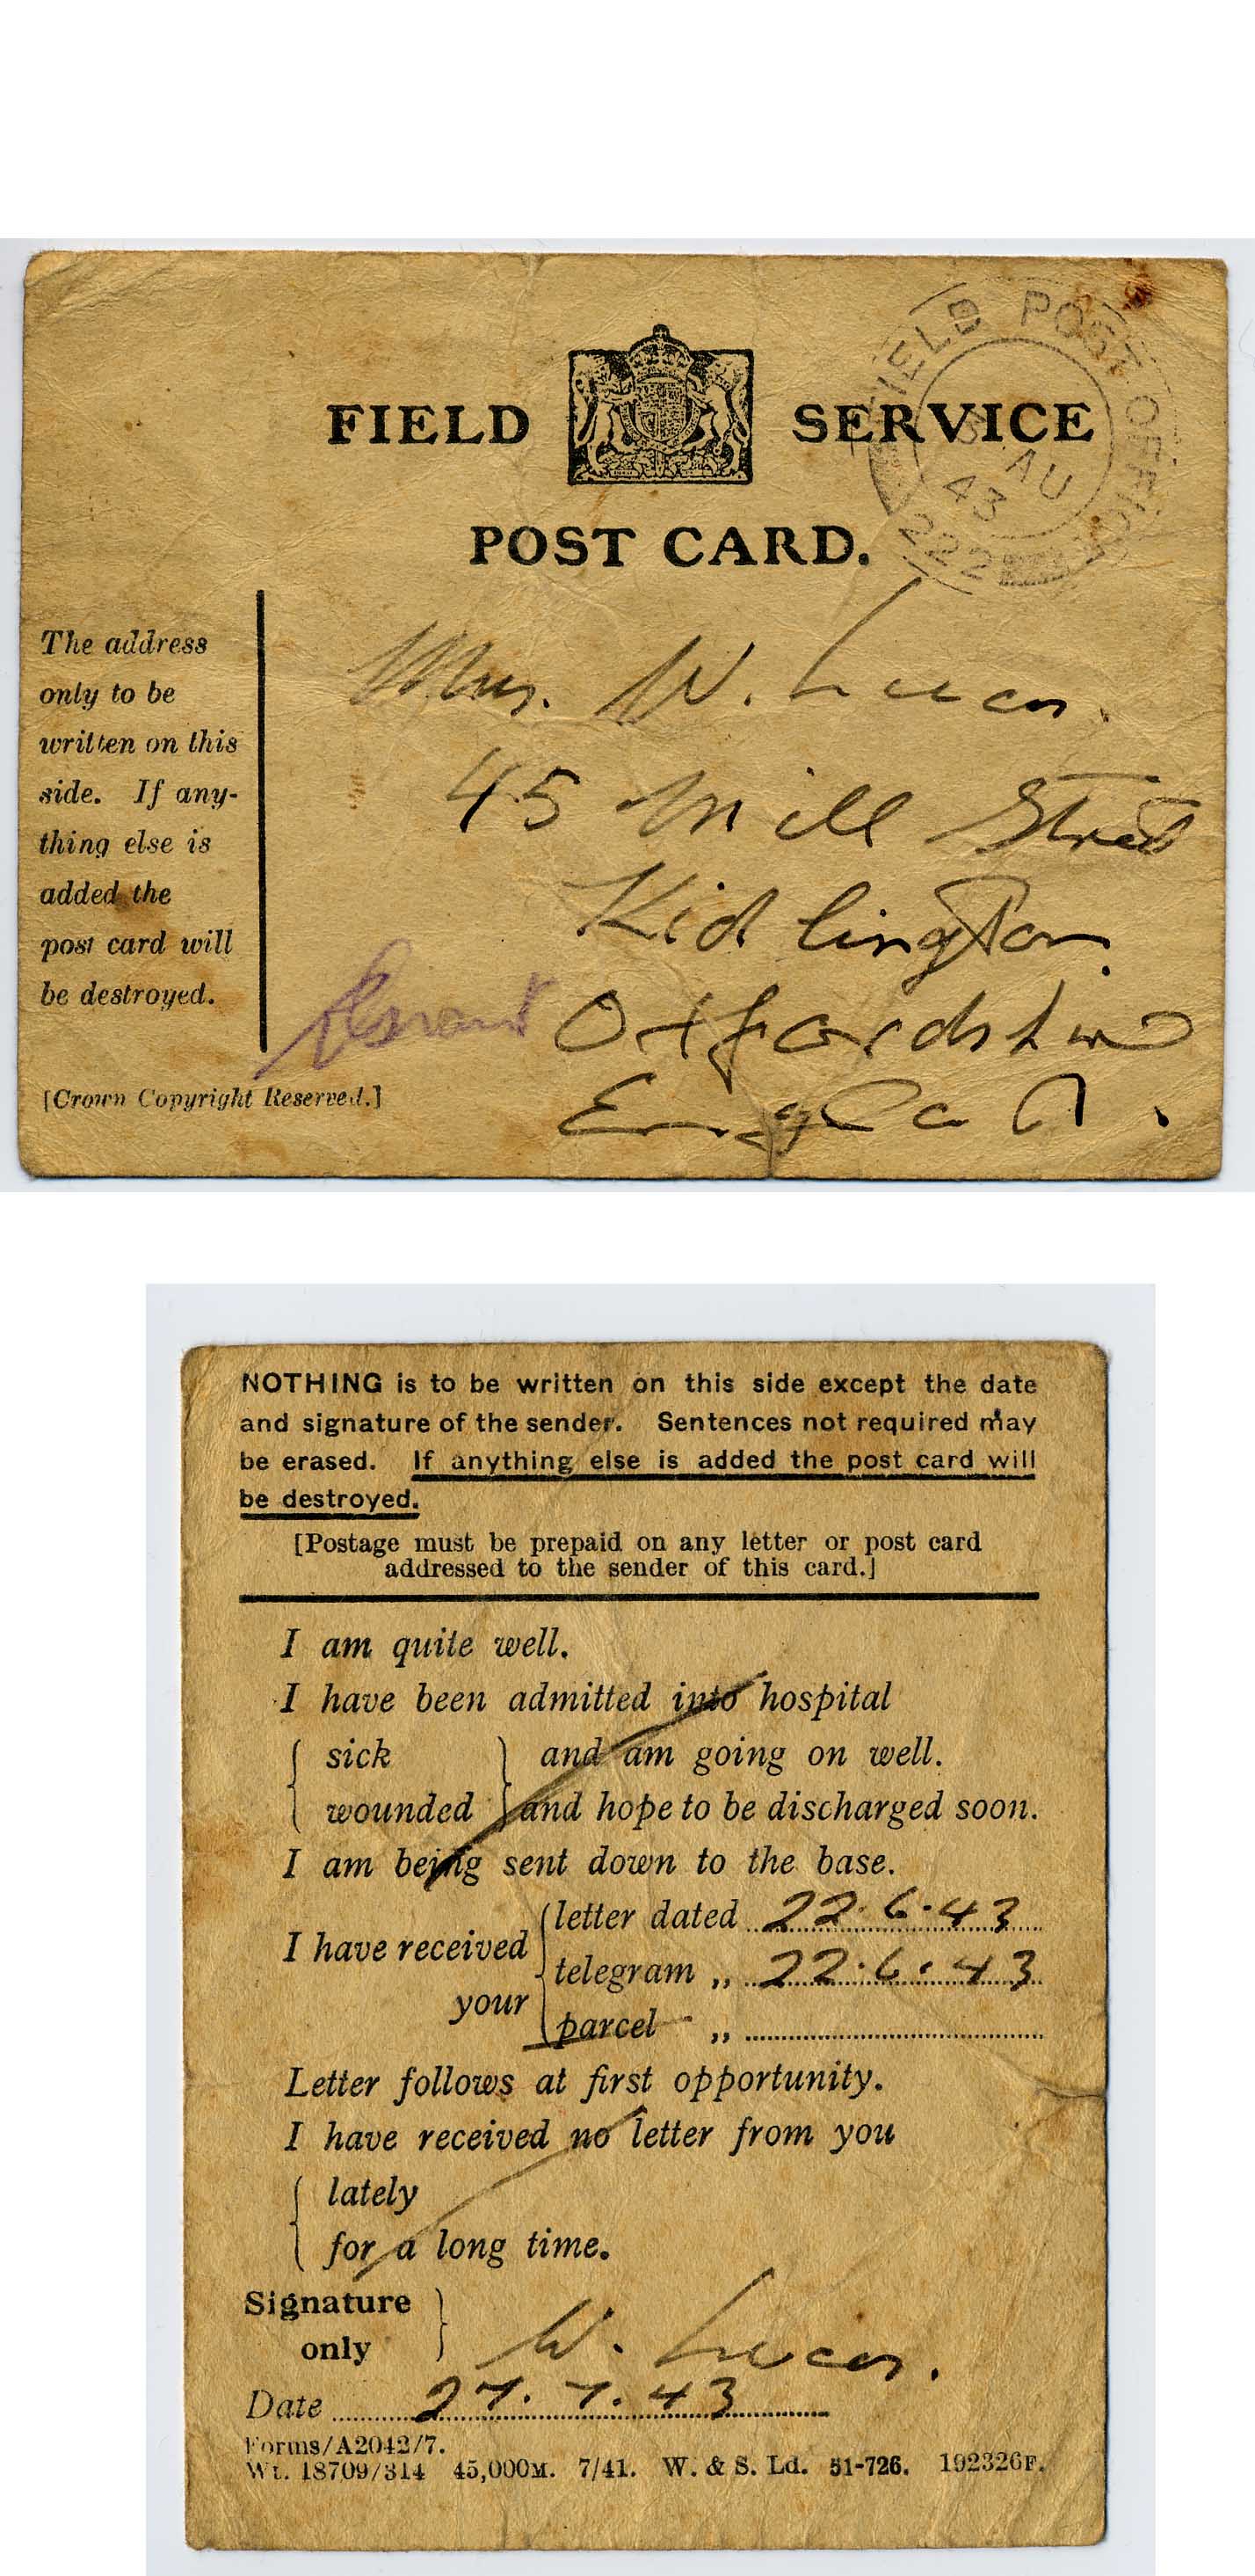 FIELD SERVICE
POST CARD.
FIELD POST OFFICE
AU
43
222
The address
only to be
written on this
side. If any-
thing else is
added the
post card will
be destroyed.
[Crown Copyright Reserved.]
Mrs. W. Lucas.
45 Mill Street
Kidlington.
Oxfordshire
England.
NOTHING is to be written on this side except the date
and signature of the sender. Sentences not required may
be erased. If anything else is added the post card will
be destroyed.
[Postage must be prepaid on any letter or post card
addressed to the sender of this card.]
I am quite well.
I have been admitted into hospital
sick and am going on well.
wounded and hope to be discharged soon.
I am being sent down to the base.
letter dated 22.6.43
I have received
telegram ,, 22.6.43
your
parcel ,,
Letter follows at first opportunity.
I have received no letter from you
lately
for a long time.
Signature
only
W. Lucas.
Date 27.7.43
Forms/A2042/7.
Wt. 18709/314 45,000M. 7/41. W. & S. Ld. 51-726. 192326F.